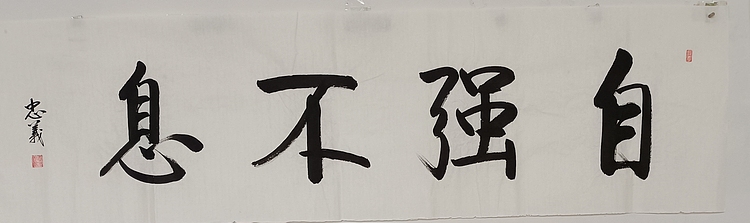 自强不息
忠義